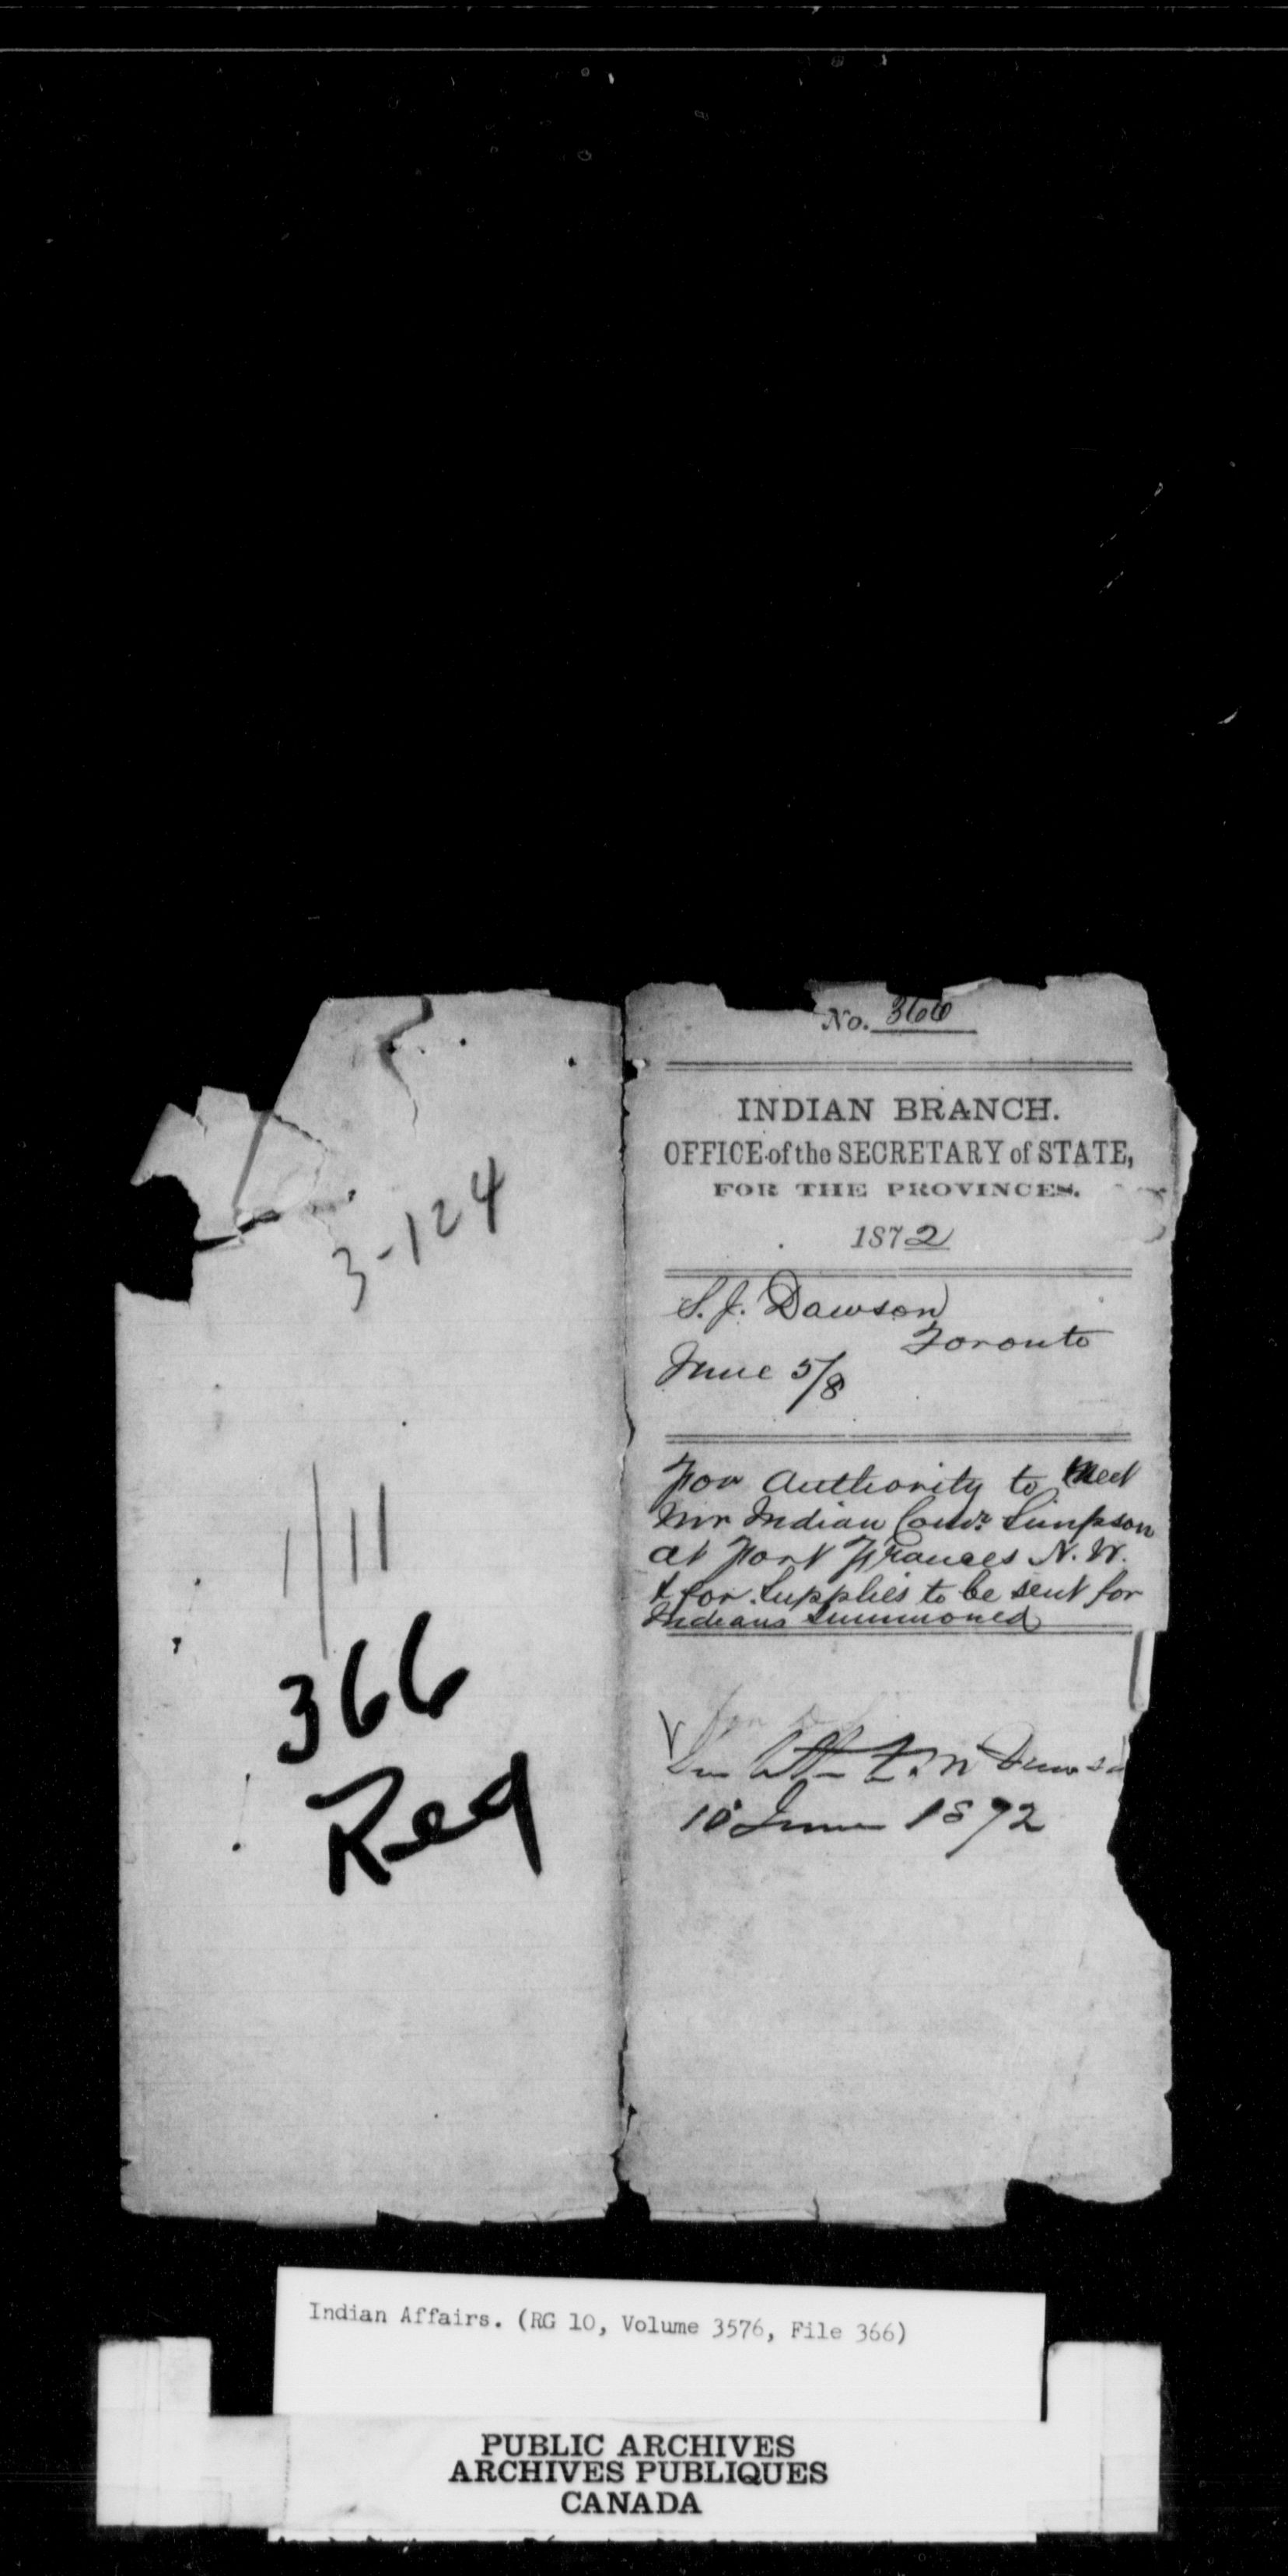 3-124
1/11
366
Red
No. 366
INDIAN BRANCH.
OFFICE of the SECRETARY of STATE,
FOR THE PROVINCES.
1872
S. J. Dawson
Toronto
June 5/8
For Authority to meet
Mr Indian Comr. Simpson
at Fort Frances N. W.
& for Supplies to be sent for
Indians summoned
10 June 1872
Indian Affairs. (RG 10, Volume 3576, File 366)
PUBLIC ARCHIVES
ARCHIVES PUBLIQUES
CANADA